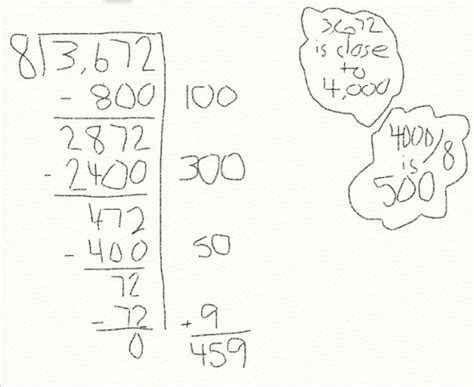 8)3,672
- 800 100
2872
- 2400 300
472
- 400 50
72
- 72 + 9
0 459
3672
is close
to
4,000
4000/8
is
500